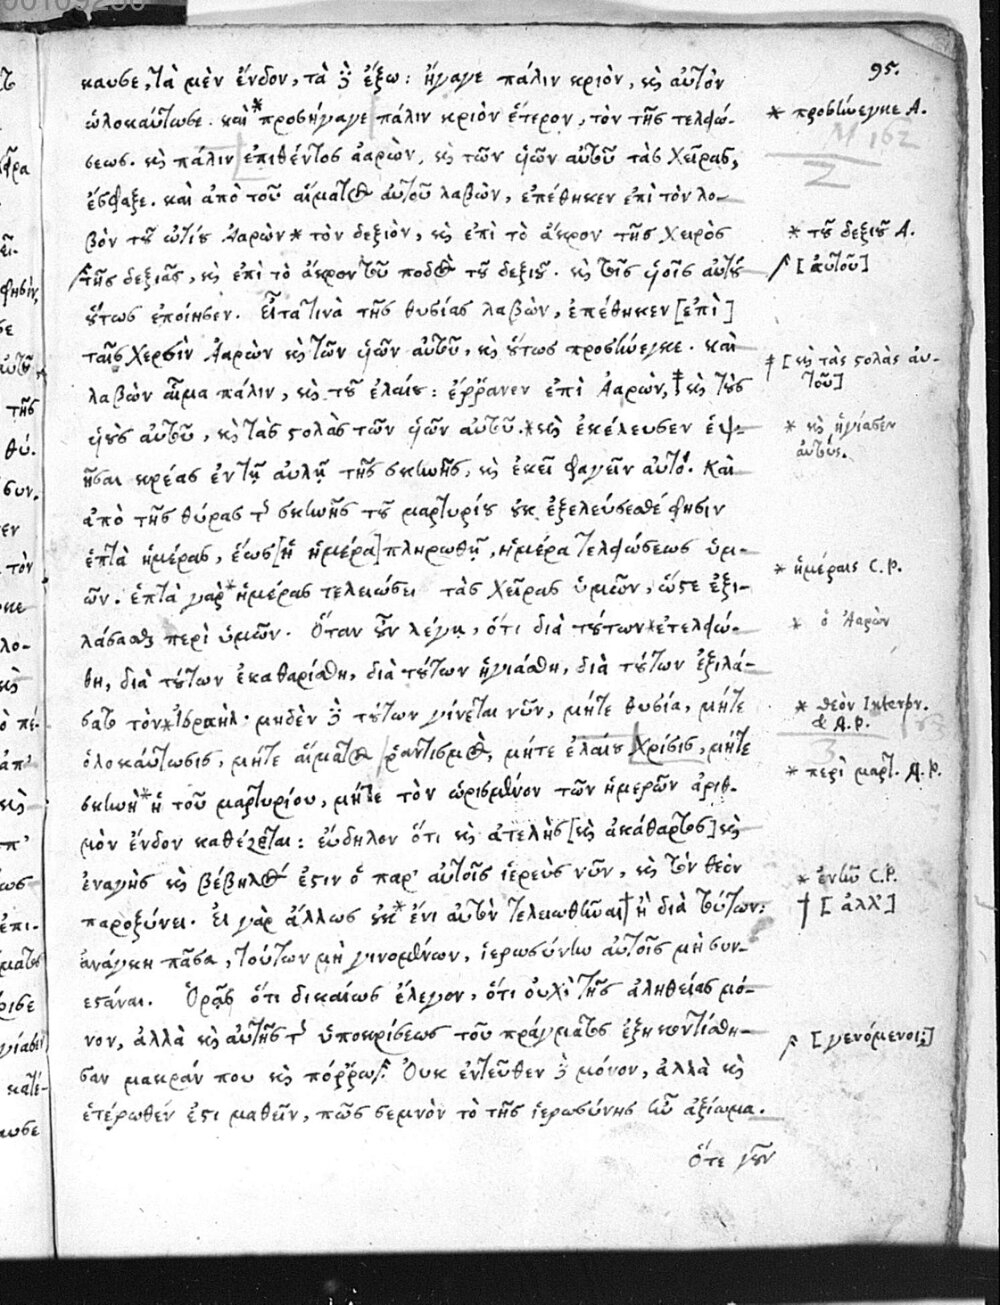 00109230
95.
καυσε, τὰ μὲν ἔνδον, τὰ δὲ ἔξω: ἤγαγε πάλιν κριὸν, κỳ αὐτὸν
ὡλοκαύτωσε. καὶ * προσήγαγε πάλιν κριὸν ἕτερον, τὸν τῆς τελειώ-
* προσήνεγκε A.
M 162
2
σεως. κỳ πάλιν ἐπιθέντος ἀαρὼν, κỳ τῶν ὑιῶν αὐτοῦ τὰς χεῖρας,
ἔσφαξε. καὶ ἀπὸ τοῦ αἵματος αὐτοῦ λαβὼν, ἐπέθηκεν ἐπὶ τὸν λο-
βὸν τοῦ ὠτίου Ἀαρὼν * τὸν δεξιὸν, κỳ ἐπὶ τὸ ἄκρον τῆς χειρὸς
* τοῦ δεξιοῦ A.
τῆς δεξιᾶς, κỳ ἐπὶ τὸ ἄκρον τοῦ ποδὸς τοῦ δεξιοῦ. κỳ τοῖς ὑιοῖς αὐτοῦ
[αὐτοῦ]
οὕτως ἐποίησεν. Εἶτα τινὰ τῆς θυσίας λαβὼν, ἐπέθηκεν [ἐπὶ]
ταῖς χερσὶν Ἀαρὼν κỳ τῶν ὑιῶν αὐτοῦ, κỳ οὕτως προσήνεγκε. καὶ
‡ [κỳ τὰς ςολὰς αὐ-
τοῦ]
λαβὼν αἷμα πάλιν, κỳ τοῦ ἐλαίου: ἔῤῥανεν ἐπὶ Ἀαρὼν, ‡ κỳ τοὺς
ὑιοὺς αὐτοῦ, κỳ τὰς ςολὰς τῶν ὑιῶν αὐτοῦ. * κỳ ἐκέλευσεν ἑψ-
* κỳ ἡγίασεν
αὐτούς.
ῆσαι κρέας ἐν τῇ αὐλῇ τῆς σκηνῆς, κỳ ἐκεῖ φαγεῖν αὐτό. Καὶ
ἀπὸ τῆς θύρας τῆς σκηνῆς τοῦ μαρτυρίου οὐκ ἐξελεύσεσθέ φησιν
ἑπτὰ ἡμέρας, ἕως [ἡ ἡμέρα] πληρωθῇ, ἡμέρα τελειώσεως ὑμ-
* ἡμέραις C. P.
ῶν. ἑπτὰ γὰρ * ἡμέρας τελειώσει τὰς χεῖρας ὑμῶν, ὥςε ἐξι-
λάσασθαι περὶ ὑμῶν. Ὅταν οὖν λέγῃ, ὅτι διὰ τούτων * ἐτελειώ-
* ὁ Ἀαρὼν
θη, διὰ τούτων ἐκαθαρίσθη, διὰ τούτων ἡγιάσθη, διὰ τούτων ἐξιλά-
σατο τὸν * Ἰσραήλ· μηδὲν δὲ τούτων γίνεται νῦν, μήτε θυσία, μήτε
* θεὸν Interpr.
& A. P.
3
ὁλοκαύτωσις, μήτε αἵματος ῥαντισμὸς, μήτε ἐλαίου χρίσις, μήτε
σκηνὴ * ἡ τοῦ μαρτυρίου, μήτε τὸν ὡρισμένον τῶν ἡμερῶν ἀριθ-
* περὶ μαρτ. A. P.
μὸν ἔνδον καθέζεται: εὔδηλον ὅτι κỳ ἀτελὴς [κỳ ἀκάθαρτος] κỳ
ἐναγὴς κỳ βέβηλος ἐςιν ὁ παρ' αὐτοῖς ἱερεὺς νῦν, κỳ τὸν θεὸν
* ἐνῆν C. P.
παροξύνει. Εἰ γὰρ ἄλλως οὐκ * ἔνι αὐτὸν τελειωθῆναι † ἢ διὰ τούτων:
† [ἀλλ']
ἀνάγκη πᾶσα, τούτων μὴ γινομένων, ἱερωσύνην αὐτοῖς μὴ συν-
εςάναι. Ὁρᾷς ὅτι δικαίως ἔλεγον, ὅτι οὐχὶ τῆς ἀληθείας μό-
νον, ἀλλὰ κỳ αὐτῆς τῆς ὑποκρίσεως τοῦ πράγματος ἐξηκοντίσθη-
[γενόμενοι;]
σαν μακράν που κỳ πόῤῥω. Οὐκ ἐντεῦθεν δὲ μόνον, ἀλλὰ κỳ
ἑτέρωθεν ἔςι μαθεῖν, πῶς σεμνὸν τὸ τῆς ἱερωσύνης ἦν ἀξίωμα.
ὅτε γοῦν